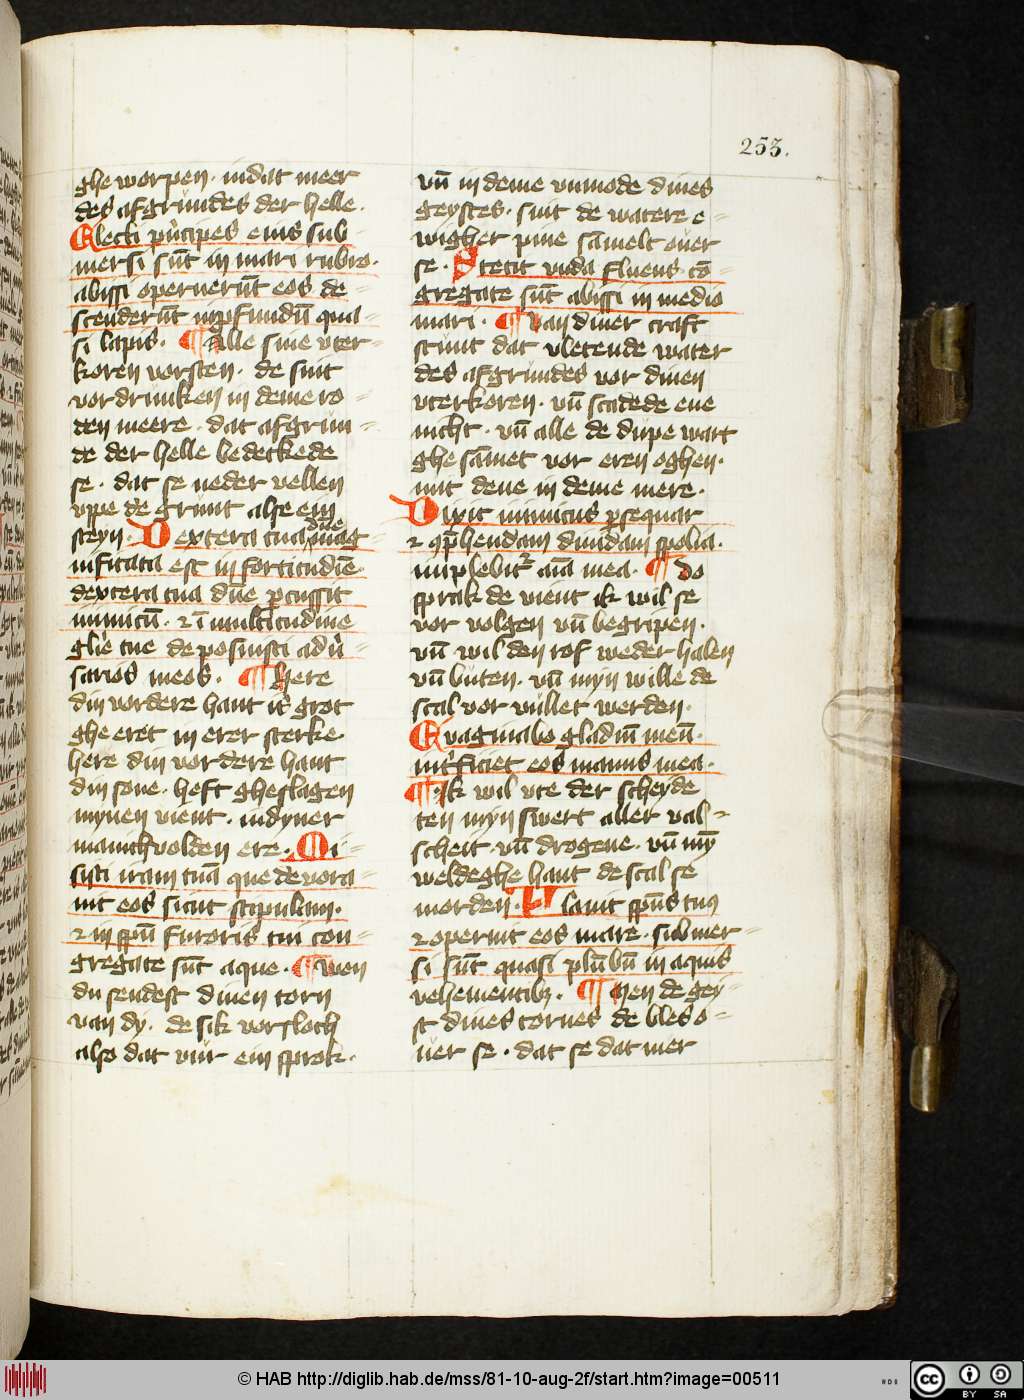 253.
ghe worpen · in dat meer
des afgrundes der helle ·
Electi p̲ncipes eius sub⸗
mersi sūt in mari rubro ·
abissi operuerūt eos de⸗
scenderūt in ꝓfundū qua⸗
si lapis · ¶ Alle sine vter⸗
koren vorsten · de sint
vordrunken in deme ro⸗
den meere · dat afgrun⸗
de der helle bedeckede
se · dat se neder vellen
vppe de grunt alse ein
steyn · Dextera tua dn̄e mag⸗
nificata est in fortitudīe ·
dextera tua dn̄e ꝑcussit
inimicū · ⁊ ī multitudine
glīe tue deposuisti adū⸗
sarios meos · ¶ here
din vordere hant is grot
ghe eret in erer sterke
here din vordere hant
din sone · heft gheslagen
mynen vient · in dyner
manichvolden ere · Mi⸗
sisti iram tuā que devora⸗
uit eos sicut stipulam ·
⁊ in spū furoris tui con⸗
gregate sūt aque · ¶ wen
du sendest dinen torn
van dy · de sik vorsloch
also dat vur ein sprok ·
vn̄ in deme vnmode dines
geystes · sint de watere e⸗
wigher pine sāmelt over
se · Stetit vnda fluens cō⸗
gregate sūt abissi in medio
mari · ¶ Van diner craft
stunt dat vletende water
des afgrundes vor dinen
vterkoren · vn̄ scadede ene
nicht · vn̄ alle de dupe wart
ghe sāmet vor eren oghen ·
mit dene in deme mere ·
Dixit inimicus ꝑsequar
⁊ ꝯp̄hendam diuidam spolia ·
implebit᷑ aīa mea · ¶ Do
sprak de vient ik wil se
vor volgen vn̄ begripen ·
vn̄ wil den rof weder halen
vn̄ buten · vn̄ myn wille de
scal vor vullet werden ·
Evaginabo gladiū meū ·
int̓ficiet eos manus mea ·
¶ Ik wil vte der scheyde
ten myn swert aller val⸗
scheit · vn̄ drogene · vn̄ mȳ
weldeghe hant de scal se
morden · Flavit sp̄us tuꝯ
⁊ operuit eos mare · submer⸗
si sūt quasi plūbū in aquis
vehementibꝫ · ¶ hen de gey⸗
st dines tornes de bles o⸗
uer se · dat se dat mer
© HAB http://diglib.hab.de/mss/81-10-aug-2f/start.htm?image=00511
cc BY SA